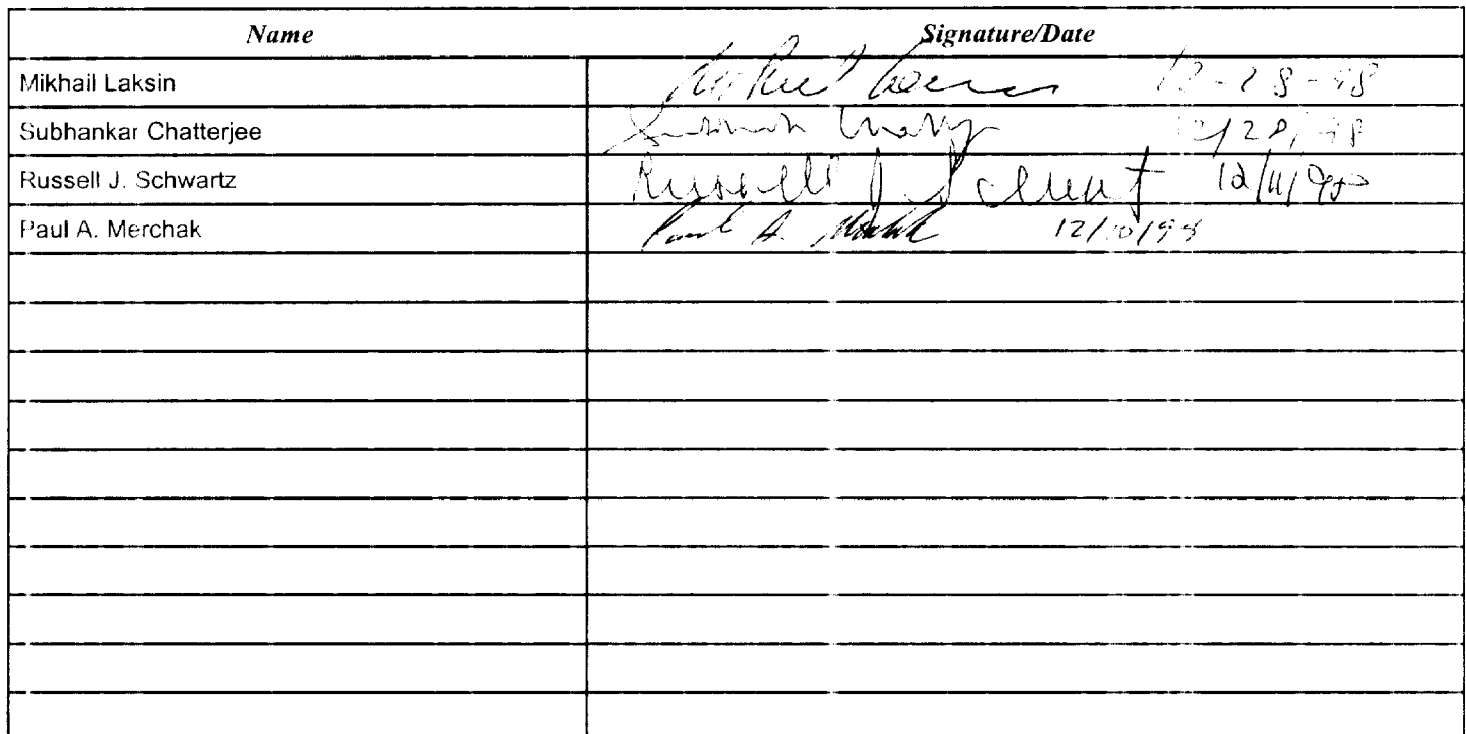 Name Signature/Date
Mikhail Laksin 12-28-98
Subhankar Chatterjee 12/28/98
Russell J. Schwartz Russell J. Schwartz 12/11/98
Paul A. Merchak Paul A. Merchak 12/10/98